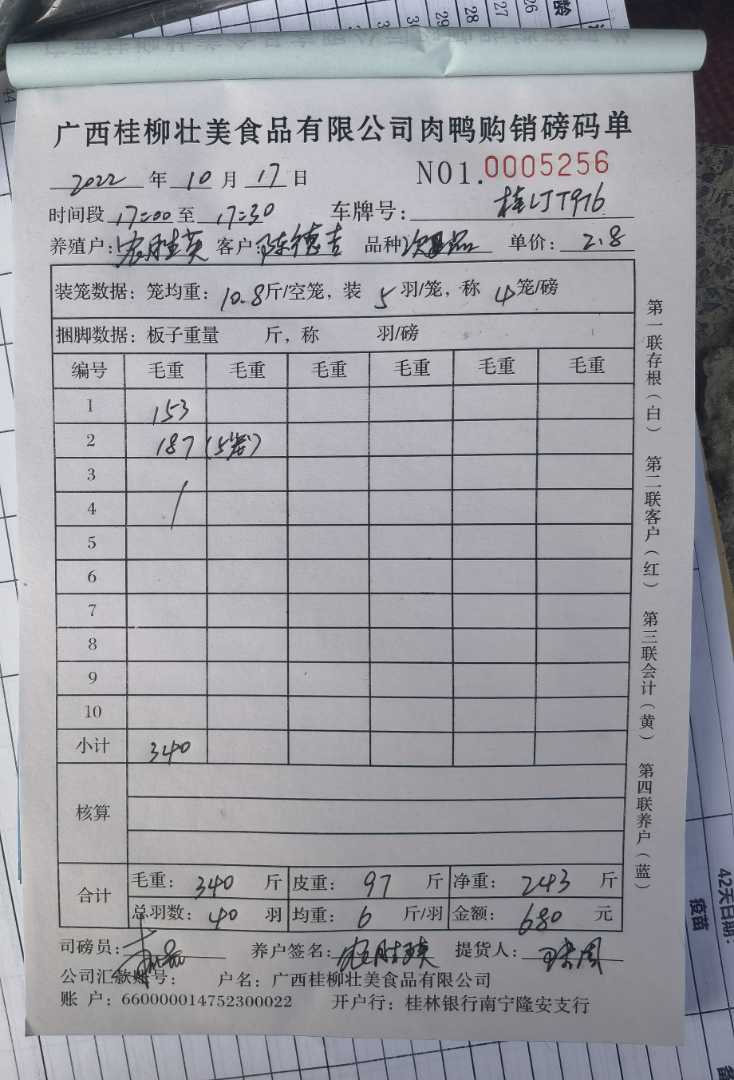 广西桂柳壮美食品有限公司肉鸭购销磅码单
2022 年 10 月 17 日 NO1.0005256
时间段 17:00 至 17:30 车牌号: 桂LJT976
养殖户: 客户: 陈德吉 品种 次品 单价: 2.8
装笼数据: 笼均重: 10.8 斤/空笼, 装 5 羽/笼, 称 4 笼/磅
捆脚数据: 板子重量 斤, 称 羽/磅
编号 毛重 毛重 毛重 毛重 毛重 毛重
1 153
2 187 (5笼)
3
4
5
6
7
8
9
10
小计 340
核算
合计 毛重: 340 斤 皮重: 97 斤 净重: 243 斤
总羽数: 40 羽 均重: 6 斤/羽 金额: 680 元
司磅员: 养户签名: 提货人:
公司汇款账号: 户名: 广西桂柳壮美食品有限公司
账 户: 660000014752300022 开户行: 桂林银行南宁隆安支行
第一联存根(白) 第二联客户(红) 第三联会计(黄) 第四联养户(蓝)
42天日期:
疫苗
26
27
28
29